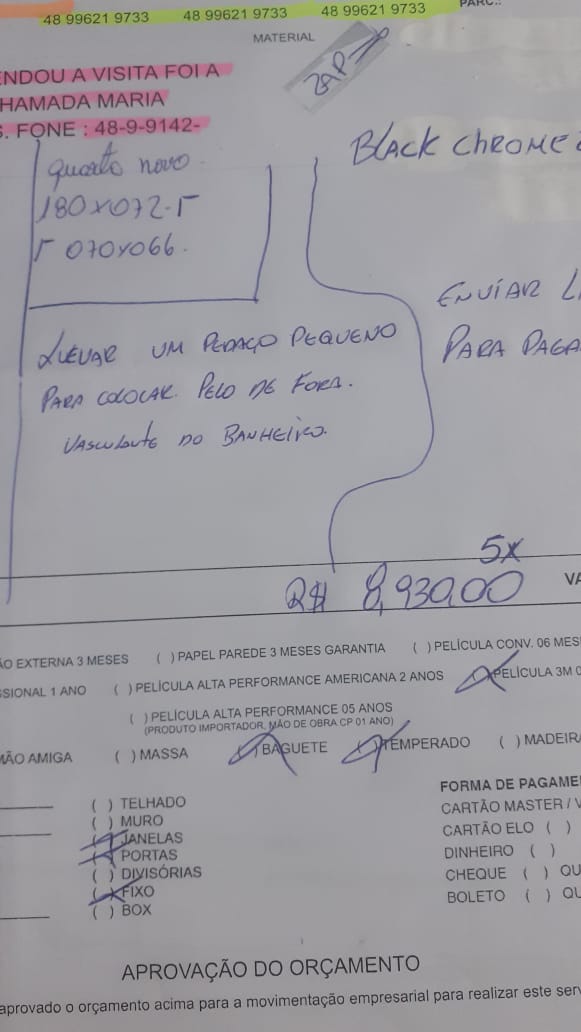 48 99621 9733 48 99621 9733 48 99621 9733 PARC.:
MATERIAL
ZAP
ENDOU A VISITA FOI A
HAMADA MARIA
S. FONE : 48-9-9142-
BLACK CHROME
quarto novo
180x072-
070x066.
ENVIAR L
PARA PAGA
LLEVAR UM PEDAÇO PEQUENO
PARA COLOCAR. PELO DE FORA.
VASCULANTE DO BANHEIRO.
5x
R$ 8,930,00 VA
ÃO EXTERNA 3 MESES ( ) PAPEL PAREDE 3 MESES GARANTIA ( ) PELÍCULA CONV. 06 MES
SSIONAL 1 ANO ( ) PELÍCULA ALTA PERFORMANCE AMERICANA 2 ANOS PELÍCULA 3M
( ) PELÍCULA ALTA PERFORMANCE 05 ANOS
(PRODUTO IMPORTADOR, MÃO DE OBRA CP 01 ANO)
MÃO AMIGA ( ) MASSA ( ) BAGUETE ( ) TEMPERADO ( ) MADEIRA
( ) TELHADO
( ) MURO
( ) JANELAS
( ) PORTAS
( ) DIVISÓRIAS
( ) FIXO
( ) BOX
FORMA DE PAGAME
CARTÃO MASTER / V
CARTÃO ELO ( )
DINHEIRO ( )
CHEQUE ( ) QU
BOLETO ( ) QU
APROVAÇÃO DO ORÇAMENTO
aprovado o orçamento acima para a movimentação empresarial para realizar este serv